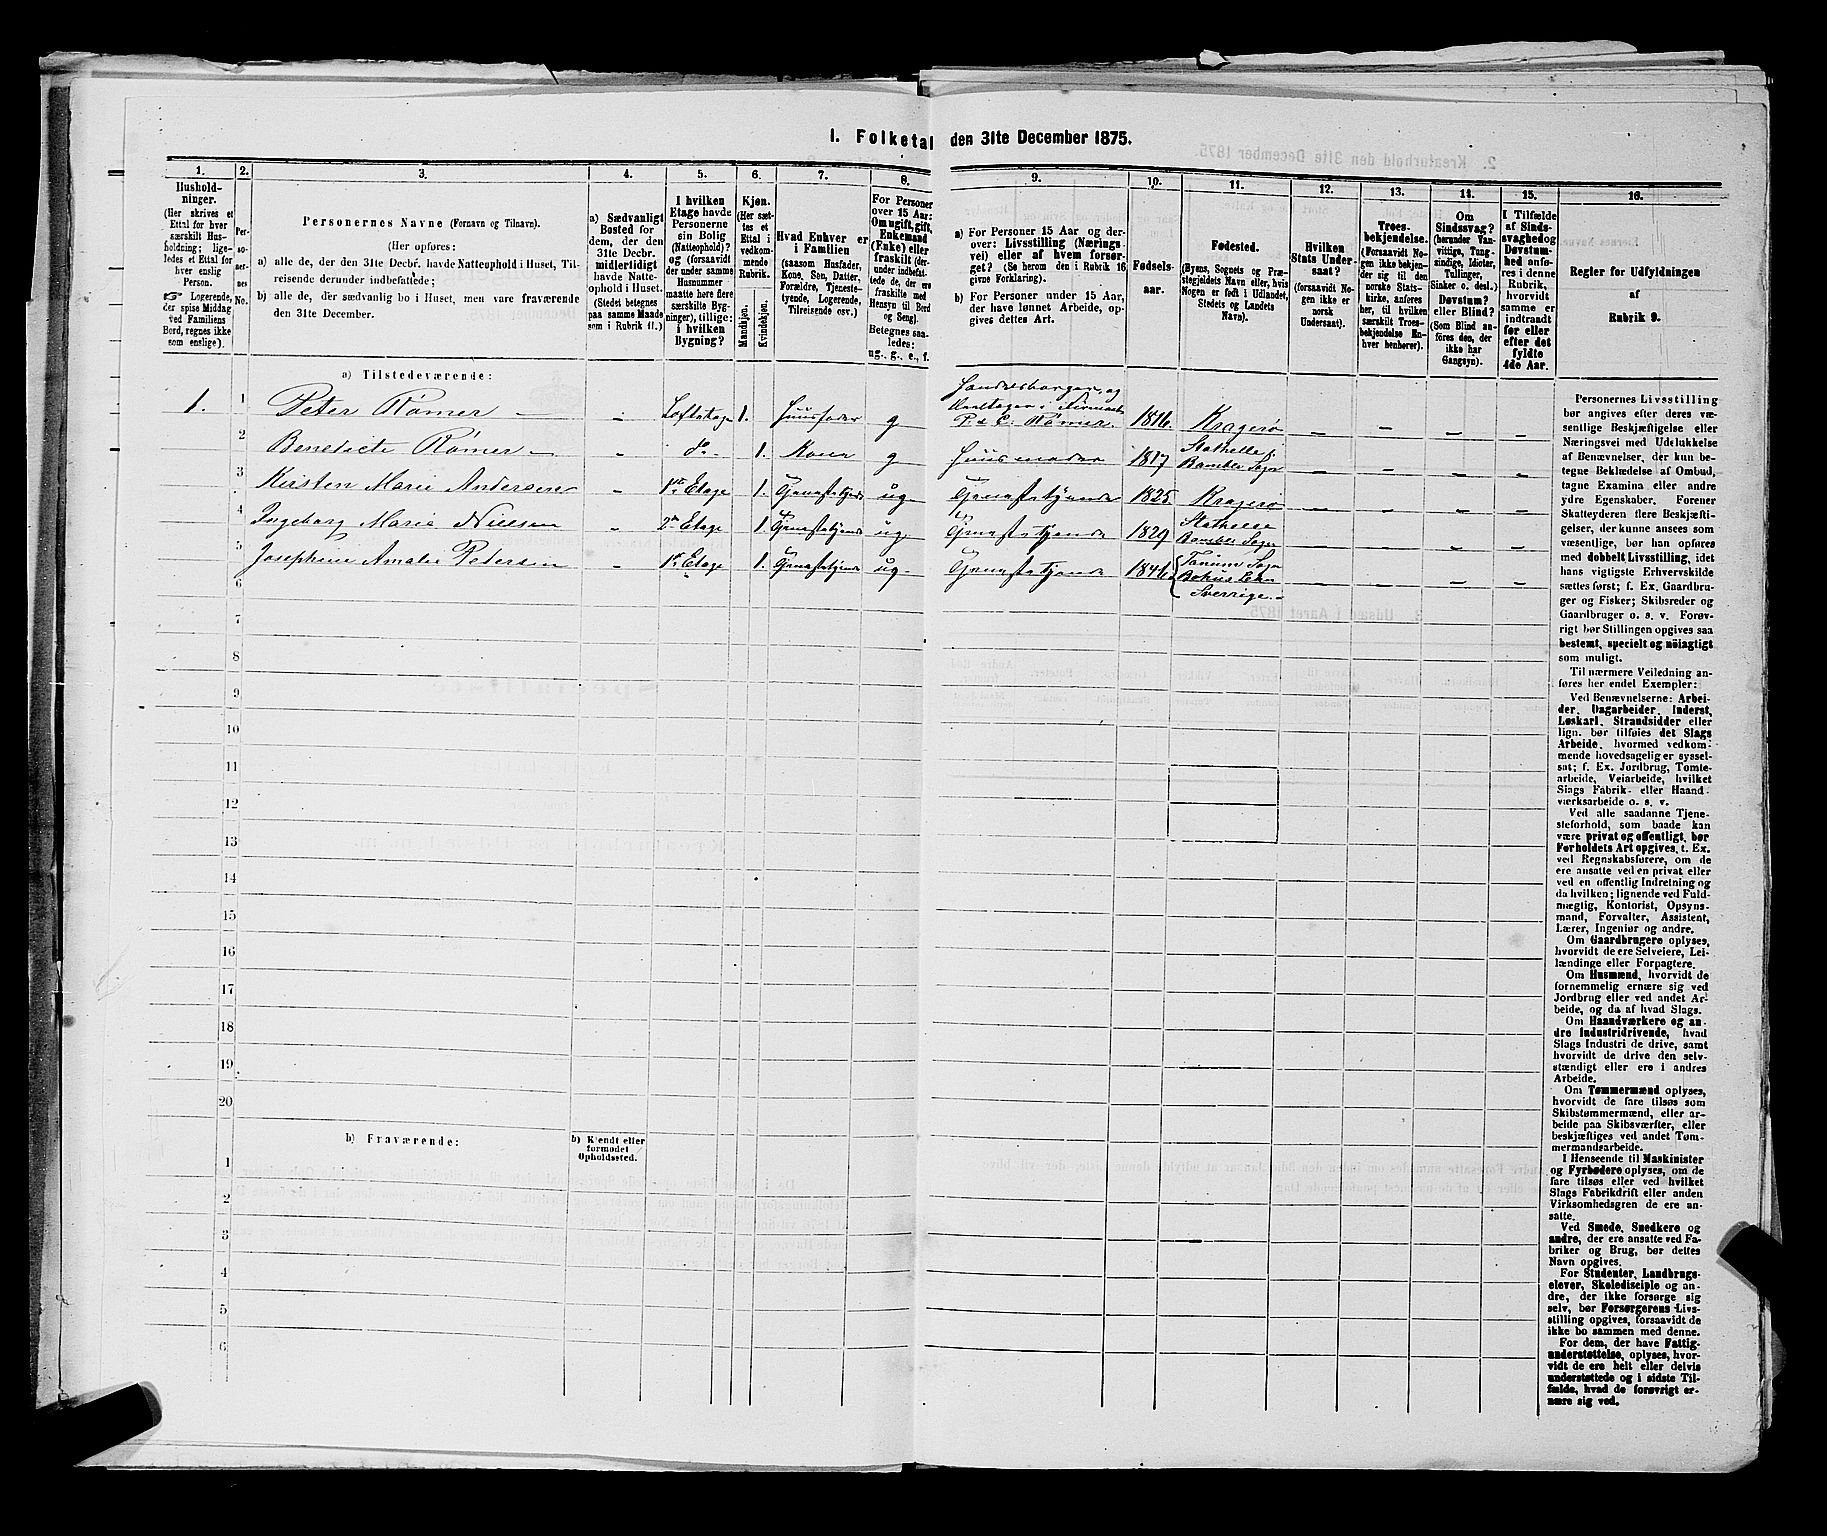 I. Folketal den 31te December 1875.
1.
Hushold-
ninger.
(Her skrives et
Ettal for hver
særskilt Hus-
holdning; lige-
ledes et Ettal for
hver enslig
Person.
☞ Logerende,
der spise Middag
ved Familiens
Bord, regnes ikke
som enslige).
2.
Per-
so-
ner-
nes
No.
3.
Personernes Navne (Fornavn og Tilnavn).
(Her opføres:
a) alle de, der den 31te Decbr. havde Natteophold i Huset, Til-
reisende derunder indbefattede;
b) alle de, der sædvanlig bo i Huset, men vare fraværende
den 31te December.
4.
a) Sædvanligt
Bosted for
dem, der den
31te Decbr.
midlertidigt
havde Natte-
ophold i Huset.
(Stedet betegnes
paa samme Maade
som i Rubrik 11.)
5.
I hvilken
Etage havde
Personerne
sin Bolig
(Natteophold)?
og (forsaavidt
der under samme
Husnummer
maatte høre flere
særskilte Byg-
ninger), tillige:
i hvilken
Bygning?
6.
Kjøn.
(Her sæt-
tes et
Ettal i
vedkom-
mende
Rubrik.
Mandkjøn.
Kvindekjøn.
7.
Hvad Enhver er
i Familien
(saasom Husfader,
Kone, Søn, Datter,
Forældre, Tjeneste-
tyende, Logerende,
Tilreisende osv.)
8.
For Personer
over 15 Aar:
Om ugift, gift,
Enkemand
(Enke) eller
fraskilt (der-
under indbefat-
tede de, der ere
fraskilte med
Hensyn til Bord
og Seng).
Betegnes saa-
ledes:
ug., g., e., f.
9.
a) For Personer 15 Aar og der-
over: Livsstilling (Nærings-
vei) eller af hvem forsør-
get? (Se herom den i Rubrik 16
givne Forklaring).
b) For Personer under 15 Aar,
der have lønnet Arbeide, op-
gives dettes Art.
10.
Fødsels-
aar.
11.
Fødested.
(Byens, Sognets og Præ-
stegjeldets Navn eller, hvis
Nogen er født i Udlandet,
Stedets og Landets
Navn).
12.
Hvilken
Stats Under-
saat?
(forsaavidt No-
gen ikke er
norsk
Undersaat).
13.
Troes-
bekjendelse.
(Forsaavidt No-
gen ikke bekjen-
der sig til den
norske Stats-
kirke, anføres
her, til hvilken
særskilt Troes-
bekjendelse En-
hver henhører).
14.
Om
Sindssvag?
(herunder Van-
vittige, Tung-
sindige, Idioter,
Tullinger,
Sinker o. desl.)
Døvstum?
eller Blind?
(Som Blind an-
føres den, der
ikke har
Gangsyn).
15.
I Tilfælde
af Sinds-
svaghed og
Døvstum-
hed anfø-
res i denne
Rubrik,
hvorvidt
samme er
indtraadt
før eller
efter det
fyldte
4de Aar.
16.
Regler for Udfyldningen
af
Rubrik 9.
a) Tilstedeværende:
1. 1 Peter Rømer – – Loftetage 1. Huusfader g Handelsborger og
Deeltager i Firmaet
P. & C. Rømer. 1816. Kragerø – – – –
2 Benedicte Rømer – – do 1. Kone g Huusmoder 1817 Stathelle,
Bamble Sogn – – – –
3 Kirsten Marie Andersen – 1ste Etage 1. Tjenestetyende ug Tjenestetyende 1825. Kragerø – – – –
4 Ingeborg Marie Nielsen – 2den Etage 1. Tjenestetyende ug. Tjenestetyende 1829 Stathelle
Bamble Sogn – – – –
5 Josephine Amalie Petersen – 1ste Etage 1. Tjenestetyende ug Tjenestetyende 1846 Tanum Sogn
Bohus Lehn
Sverrige. – – – –
6
7
8
9
10
11
12
13
14
15
16
17
18
19
20
b) Fraværende:
b) Kjendt eller
formodet
Opholdssted.
1
2
3
4
5
6
Personernes Livsstilling
bør angives efter deres væ-
sentlige Beskjæftigelse eller
Næringsvei med Udelukkelse
af Benævnelser, der kun be-
tegne Beklædelse af Ombud,
tagne Examina eller andre
ydre Egenskaber. Forener
Skatteyderen flere Beskjæfti-
gelser, der kunne ansees som
væsentlige, bør han opføres
med dobbelt Livsstilling, idet
hans vigtigste Erhvervskilde
sættes først; f. Ex. Gaardbru-
ger og Fisker; Skibsreder og
Gaardbruger o. s. v. Forøv-
rigt bør Stillingen opgives saa
bestemt, specielt og nöiagtigt
som muligt.
Til nærmere Veiledning an-
føres her endel Exempler:
Ved Benævnelserne: Arbei-
der, Dagarbeider, Inderst,
Løskarl, Strandsidder eller
lign. bør tilføies det Slags
Arbeide, hvormed vedkom-
mende hovedsagelig er syssel-
sat; f. Ex. Jordbrug, Tomte-
arbeide, Veiarbeide, hvilket
Slags Fabrik- eller Haand-
værksarbeide o. s. v.
Ved alle saadanne Tjene-
steforhold, som baade kan
være privat og offentligt, bør
Forholdets Art opgives, t. Ex.
ved Regnskabsførere, om de
ere ansatte ved en privat eller
ved en offentlig Indretning og
da hvilken; lignende ved Fuld-
mægtig, Kontorist, Opsyns-
mand, Forvalter, Assistent,
Lærer, Ingeniør og andre.
Om Gaardbrugere oplyses,
hvorvidt de ere Selveiere, Lei-
lændinge eller Forpagtere.
Om Husmænd, hvorvidt de
fornemmelig ernære sig ved
Jordbrug eller ved andet Ar-
beide, og da af hvad Slags.
Om Haandværkere og an-
dre Industridrivende, hvad
Slags Industri de drive, samt
hvorvidt de drive den selv-
stændigt eller ere i andres
Arbeide.
Om Tømmermænd oplyses,
hvorvidt de fare tilsøs som
Skibstømmermænd, eller ar-
beide paa Skibsværfter, eller
beskjæftiges ved andet Tøm-
mermandsarbeide.
I Henseende til Maskinister
og Fyrbødere oplyses, om de
fare tilsøs eller ved hvilket
Slags Fabrikdrift eller anden
Virksomhedsgren de ere an-
satte.
Ved Smede, Snedkere og
andre, der ere ansatte ved Fa-
briker og Brug, bør dettes
Navn opgives.
For Studenter, Landbrugs-
elever, Skoledisciple og an-
dre, der ikke forsørge sig
selv, bør Forsørgerens Livs-
stilling opgives, forsaavidt de
ikke bo sammen med denne.
For dem, der have Fattig-
understøttelse, oplyses, hvor-
vidt de ere helt eller delvis
understøttede og i sidste Til-
fælde, hvad de forøvrigt er-
nære sig ved.